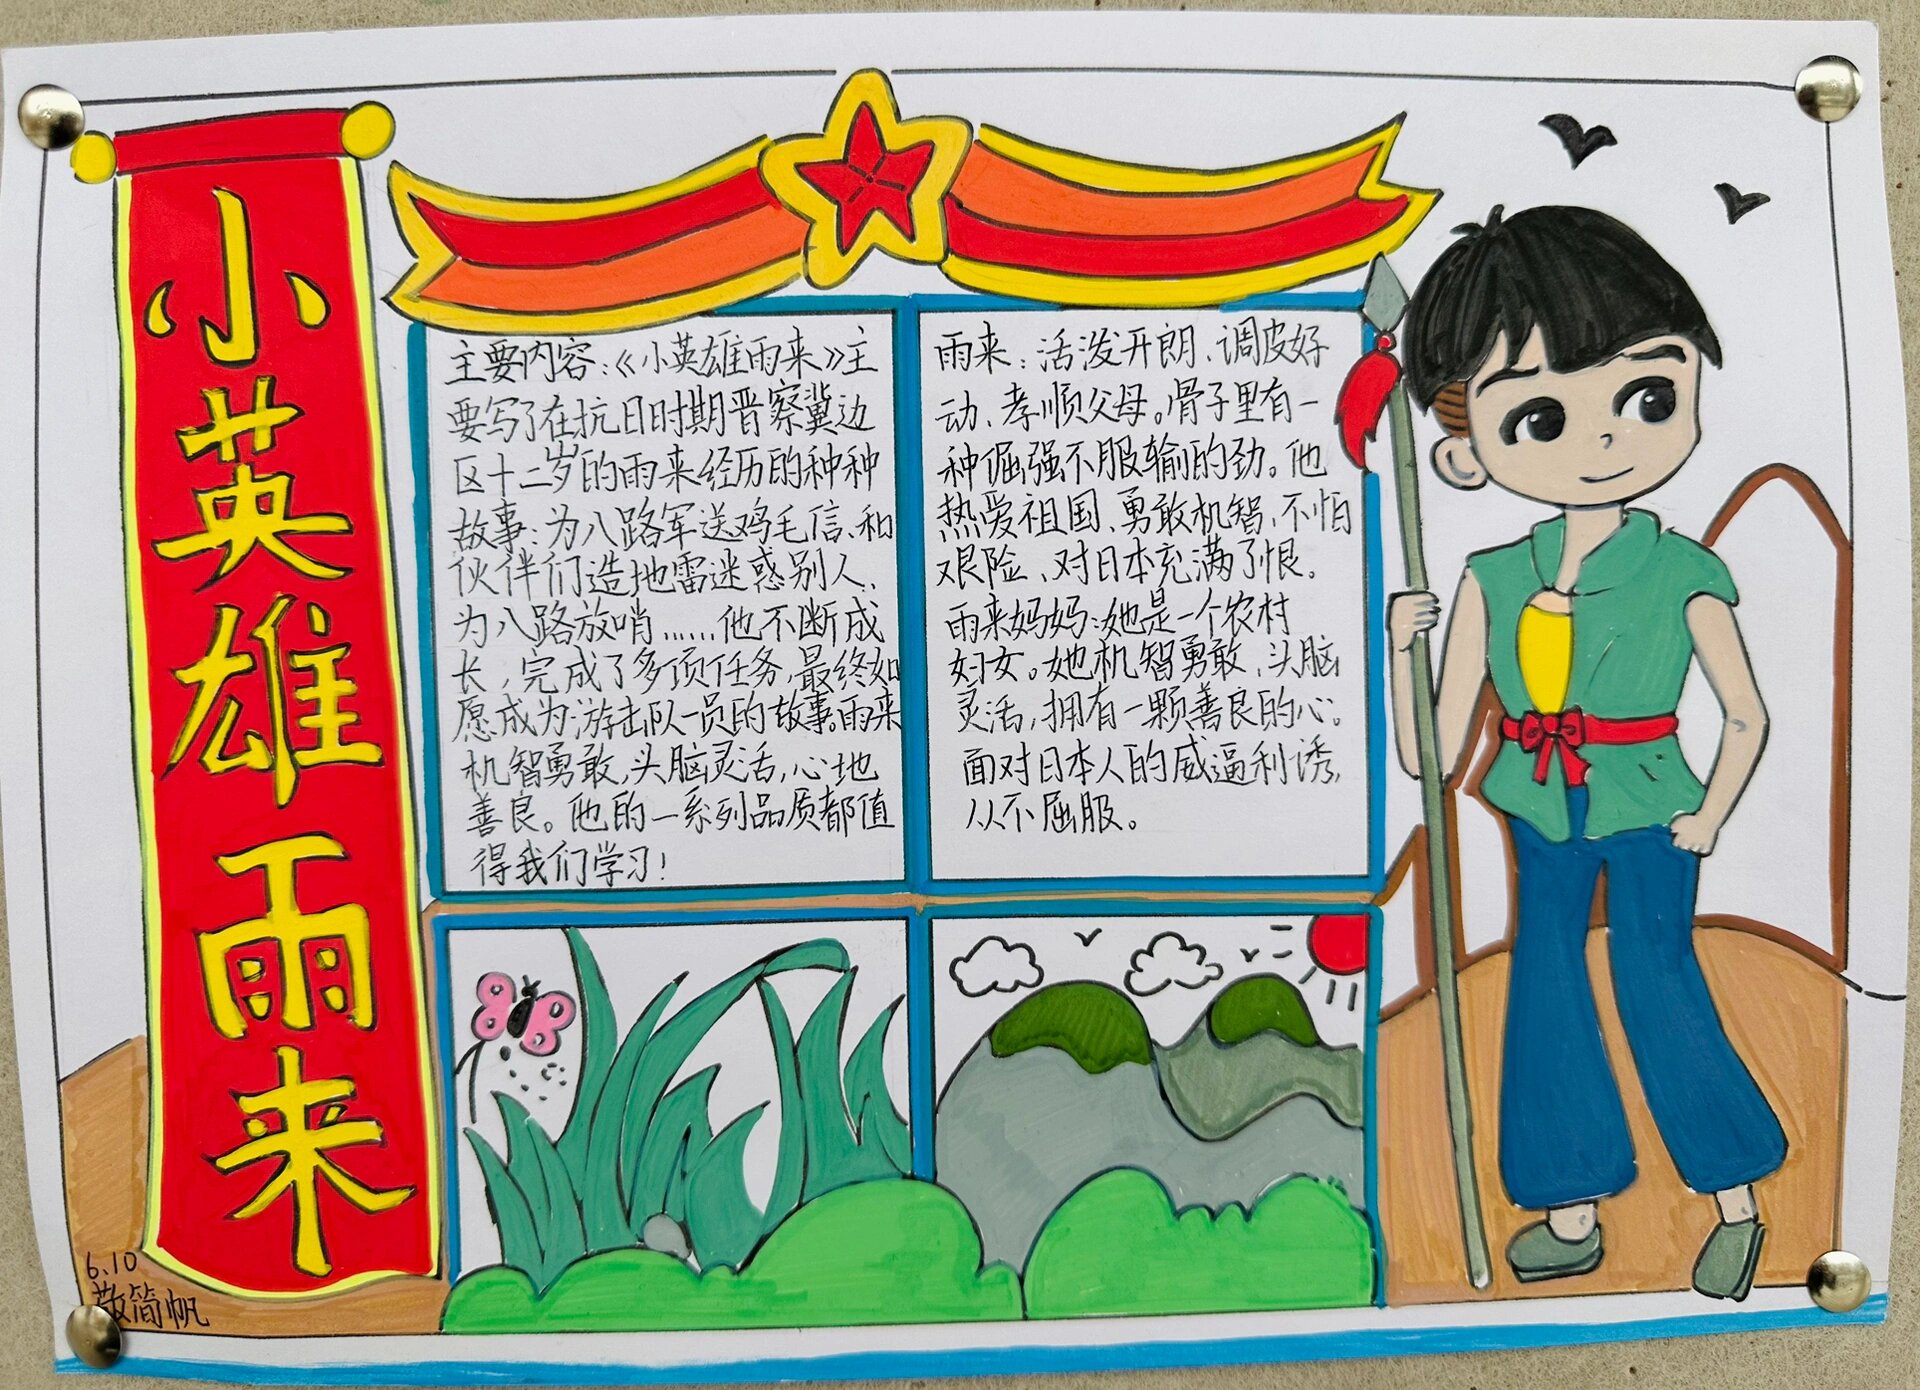 小英雄雨来
主要内容:《小英雄雨来》主
要写了在抗日时期晋察冀边
区十二岁的雨来经历的种种
故事:为八路军送鸡毛信、和
伙伴们造地雷迷惑别人、
为八路放哨……他不断成
长,完成了多项任务,最终如
愿成为游击队一员的故事。雨来
机智勇敢,头脑灵活,心地
善良。他的一系列品质都值
得我们学习!
雨来:活泼开朗、调皮好
动、孝顺父母。骨子里有一
种倔强不服输的劲。他
热爱祖国、勇敢机智,不怕
艰险、对日本充满了恨。
雨来妈妈:她是一个农村
妇女。她机智勇敢,头脑
灵活,拥有一颗善良的心。
面对日本人的威逼利诱,
从不屈服。
6.10
敬简帆